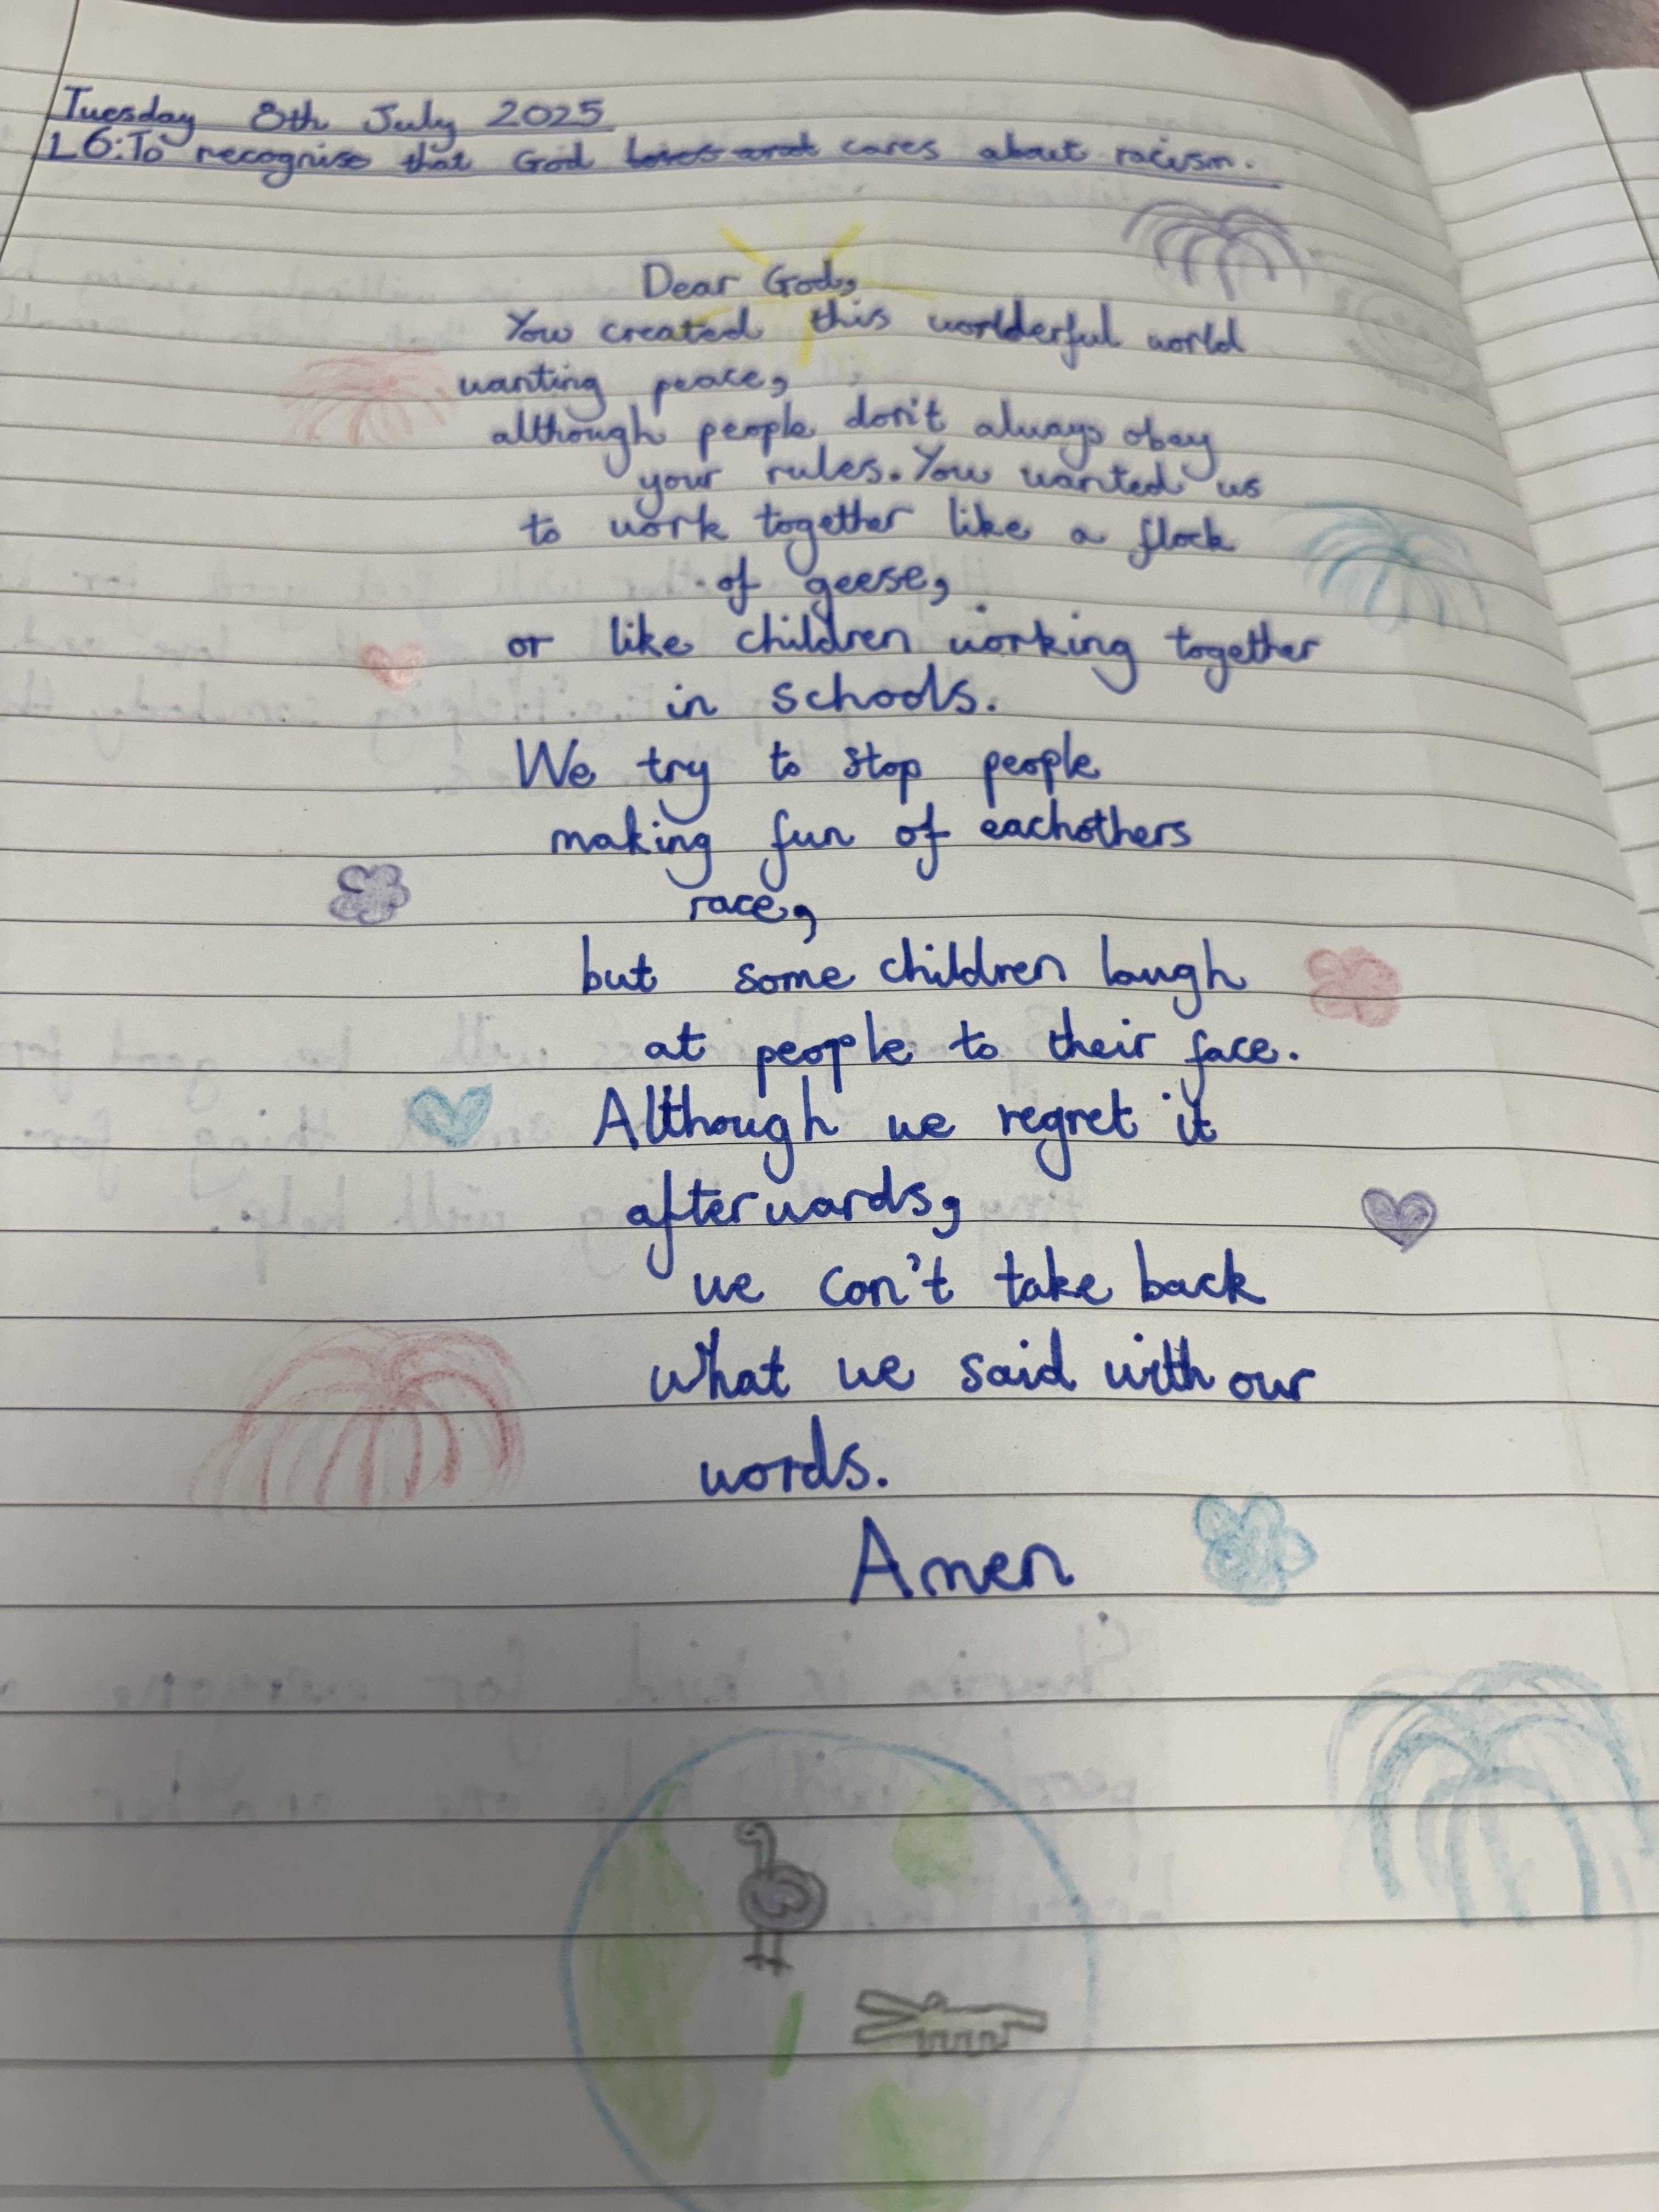 Tuesday 8th July 2025
L6:To recognise that God loves and cares about racism.
Dear God,
You created this worlderful world
wanting peace,
although people don't always obay
your rules. You wanted us
to work together like a flock
of geese,
or like children working together
in schools.
We try to stop people
making fun of eachothers
race,
but some children laugh
at people to their face.
Although we regret it
afterwards,
we can't take back
what we said with our
words.
Amen